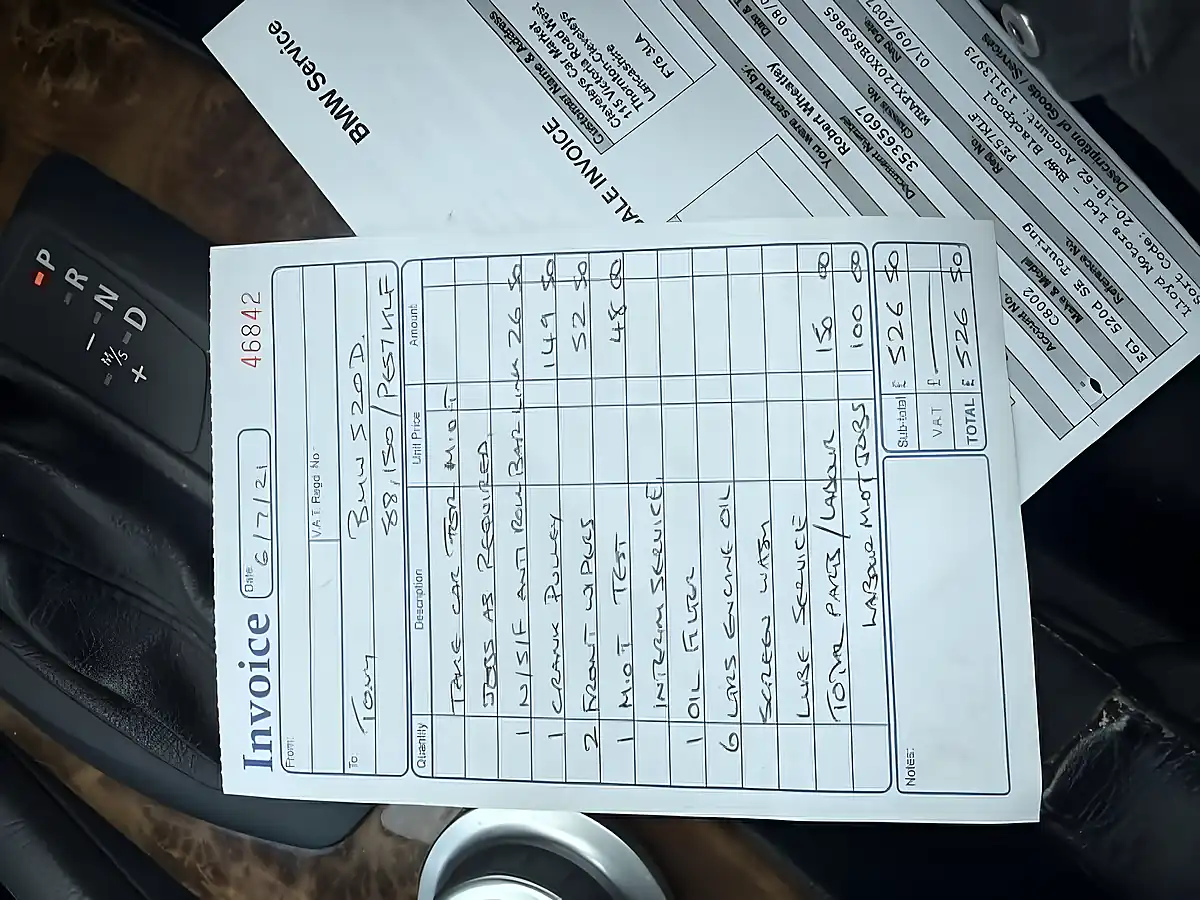 Invoice
Date: 6/7/21
46842
From:
V.A.T. Regd. No:
To: Tony BMW 520D.
88,150 /
Quantity Description Unit Price Amount
TAKE CAR FOR M.O.T
JOBS AS REQUIRED.
1 N/S/F ANTI ROLL BAR LINK 26 50
1 CRANK PULLEY 149 50
2 FRONT WIPERS 52 50
1 M.O.T TEST 48 00
INTERIM SERVICE.
1 OIL FILTER
6 LTRS ENGINE OIL
SCREEN WASH
LUBE SERVICE
TOTAL PARTS / LABOUR 150 00
LABOUR MOT JOBS 100 00
Notes:
Sub-total £ 526 50
V.A.T. £ —
TOTAL £ 526 50
BMW Service
ALE INVOICE
Customer Name & Address
Cleveleys Car Market
175 Victoria Road West
Thornton-Cleveleys
Lancashire
FY5 3LA
You were Served by:
Robert Wheatley
Date &
08/0
Document Number
35365607
Chassis No.
WBAPX120X0B669865
Reg Date
01/09/2007
Reg No.
Account No.
C8002
Make & Model
E61 520d SE Touring
Reference No.
Description of Goods / Services
Lloyd Motors Ltd - BMW Blackpool
ort Code: 20-18-62 Account:
P
R
N
D
M/S
+
−